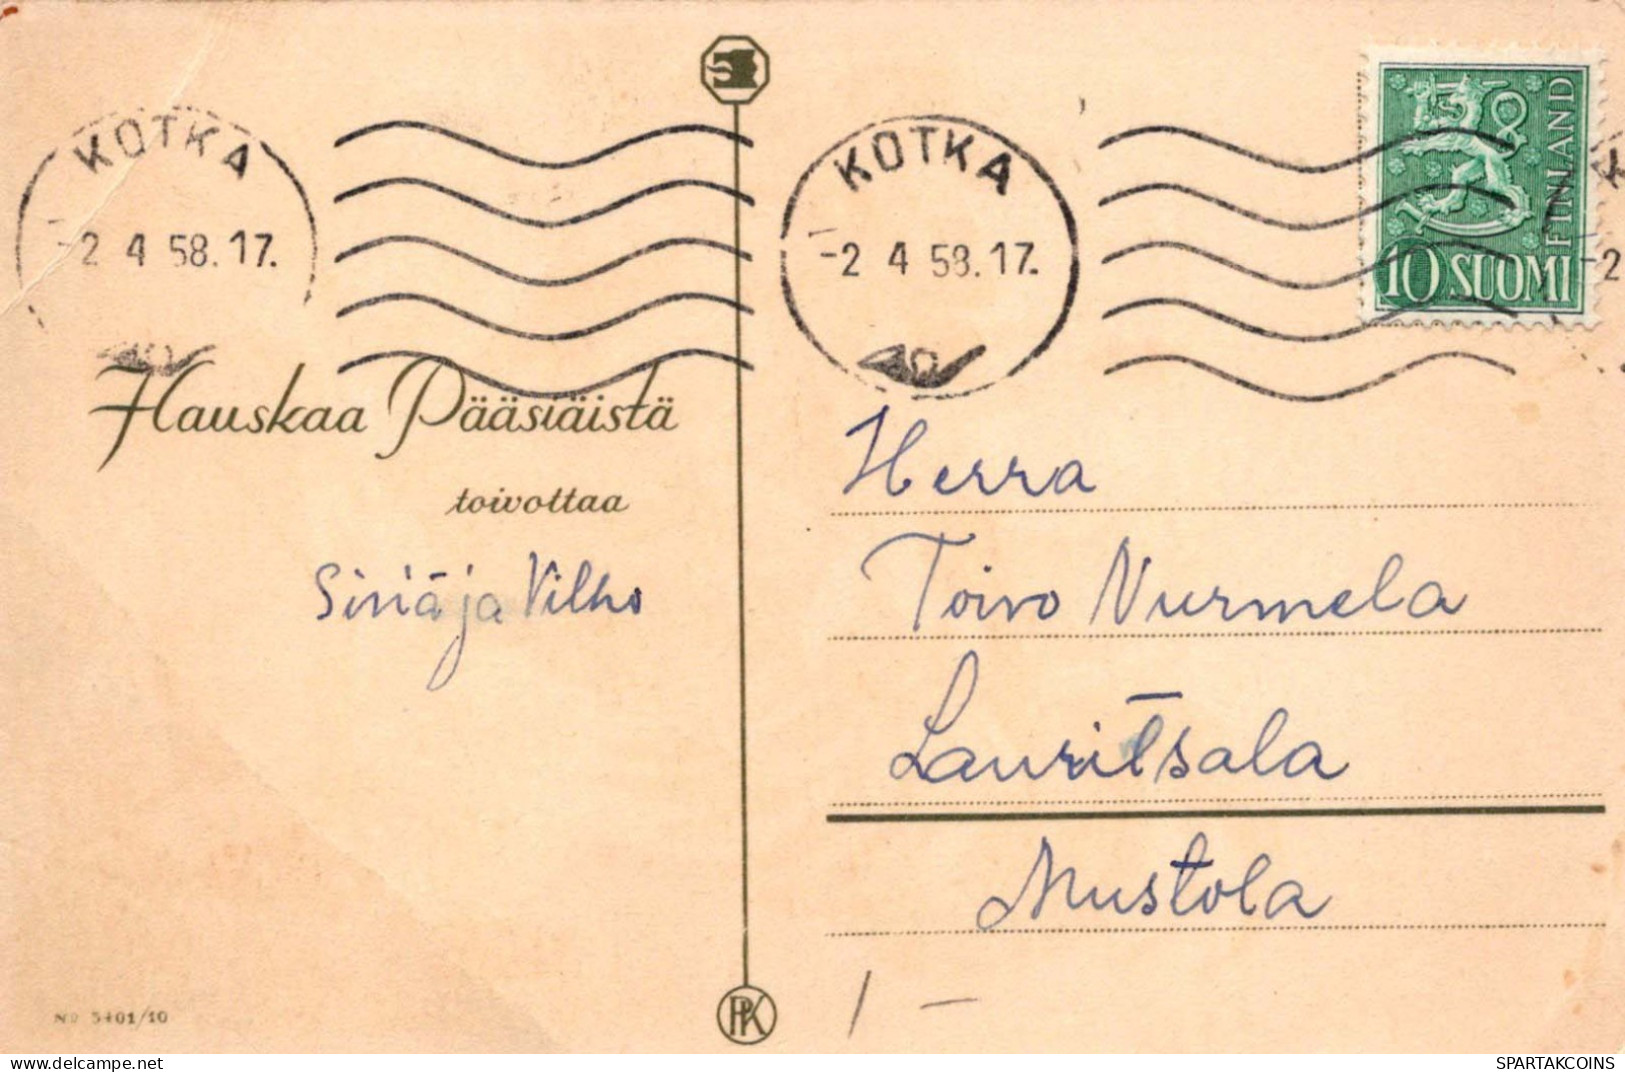 KOTKA
-2 4 58.17.
KOTKA
-2 4 58.17.
K
-2
FINLAND
10 SUOMI
Hauskaa Pääsiäistä
toivottaa
ja Vilho
Herra
Toivo Nurmela
Lauritsala
Mustola
1 -
No 5401/10
PK
SPARTAKCOINS